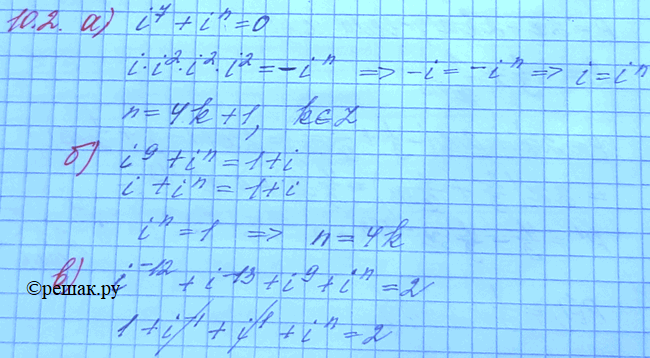 10.2. а) i⁷ + iⁿ = 0
i·i²·i²·i² = −iⁿ => −i = −iⁿ => i = iⁿ
n = 4k + 1, k ∈ Z
б) i⁹ + iⁿ = 1 + i
i + iⁿ = 1 + i
iⁿ = 1 => n = 4k
в) i⁻¹² + i⁻¹³ + i⁹ + iⁿ = 2
©решак.ру
1 + i⁻¹ + i¹ + iⁿ = 2